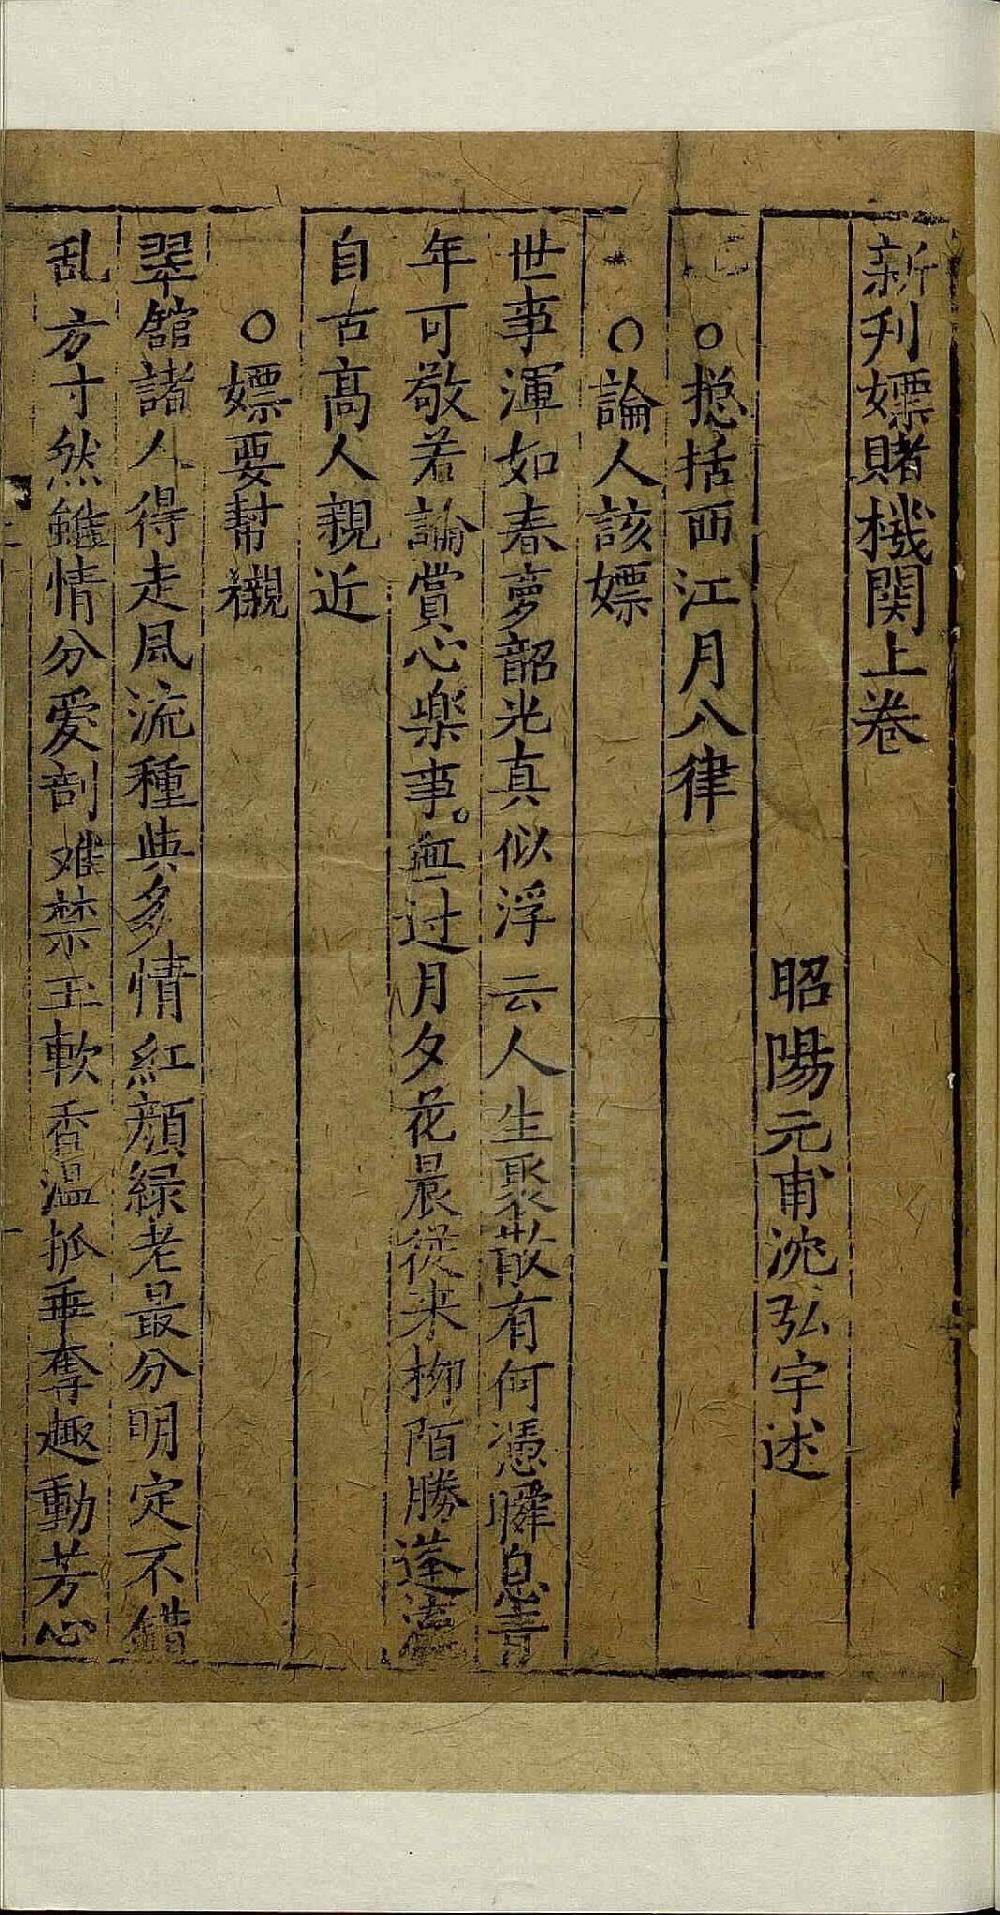 新刋嫖賭機関上卷
昭陽元甫沈弘宇述
○揔括西江月八律
○論人該嫖
世事渾如春夢韶光真似浮云人生聚散有何憑瞬息青
年可敬若論賞心樂事。無过月夕花晨從来柳陌勝蓬瀛
自古高人親近
○嫖要幇襯
翠舘諸人得走風流種典多情紅顔緑老最分明定不錯
乱方寸然雖情分爱剖难禁玉軟香温抓乖奪趣動芳心